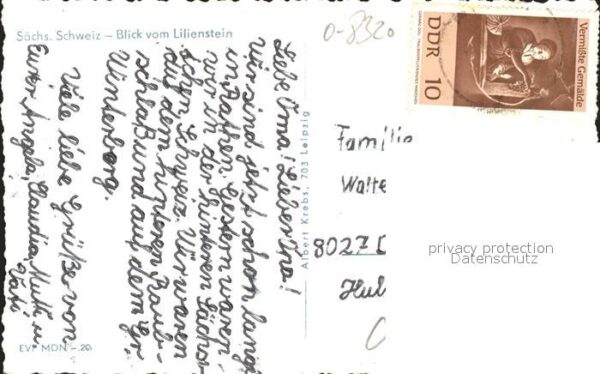 Sächs. Schweiz – Blick vom Lilienstein
0-8320
Vermißte Gemälde
DDR 10
Liebe Oma! Lieber Opa!
Wir sind jetzt schon lange
in Rathen. Gestern waren
wir in der hinteren Sächsi-
schen Schweiz. Wir waren
auf dem hinteren Raub-
schloß und auf dem Gr.
Winterberg.
Viele liebe Grüße von
Euren Angela, Claudia, Mutti u.
Vati
Albert Krebs, 703 Leipzig
EVP MDN -.20
Familie
Walte
8027 D
Hul
privacy protection
Datenschutz